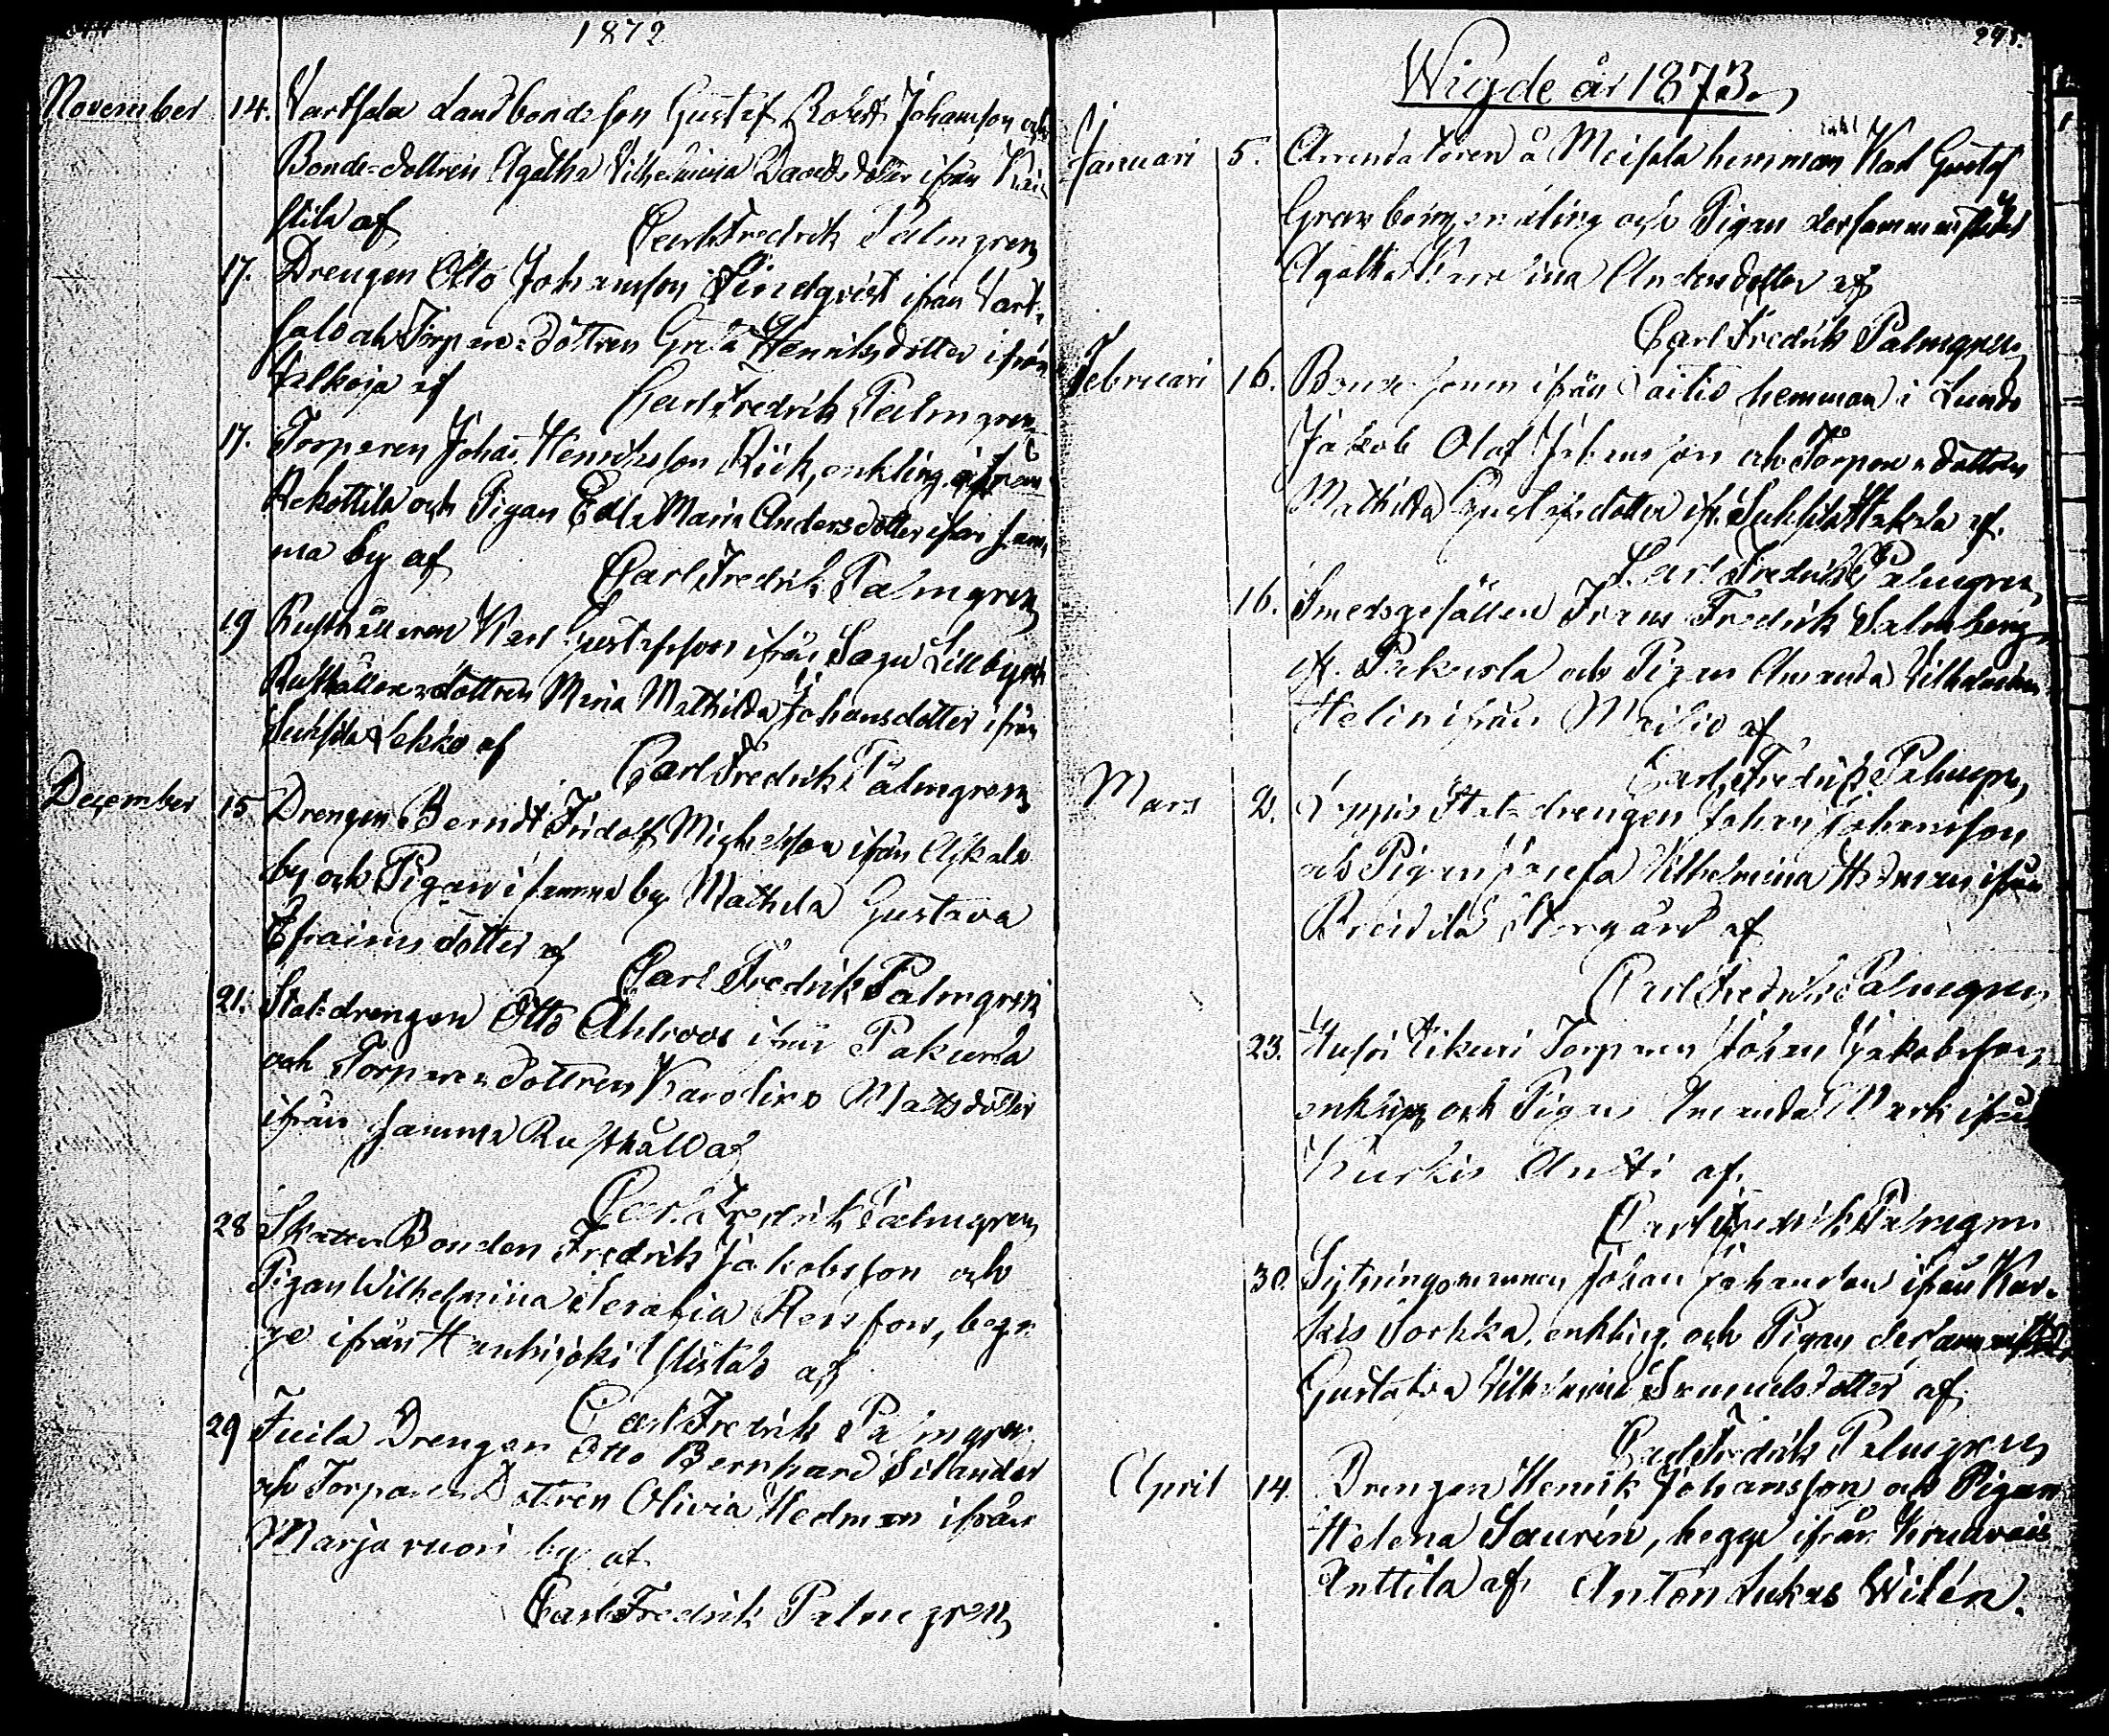 1872
November 14. Vartsala Landbondeson Gustaf Robert Johansson och
Bonde-dottren Agatha Vilhelmina Davidsdotter ifrån
stila af Carl Fredrik Palmgren
17. Drengen Otto Johansson Lindqvist ifrån Vart-
sala och Torpare-dottren Greta Henriksdotter ifrån
Valkoja af Carl Fredrik Palmgren
17. Torparen Johan Henriksson Rick, enkling ifrån
Rekottila och Pigan Edla Maria Andersdotter ifrån sam-
ma by af Carl Fredrik Palmgren
19 Rusthållaren Karl Gustafsson ifrån Sagu Lillby och
Rusthållare-dottren Mina Mathilda Johansdotter ifrån
Suksela Sekko af Carl Fredrik Palmgren
December 15 Drengen Berndt Fridolf Michelsson ifrån Askala
by och Pigan i samma by Mathilda Gustava
Efraimsdotter af Carl Fredrik Palmgren
21. Stat-drengen Otto Ahlroos ifrån Pakurla
och Torpare-dottren Karolina Mattsdotter
ifrån samma Rusthåll af
Carl Fredrik Palmgren
28 Skatte Bonden Fredrik Jakobsson och
Pigan Wilhelmina Serafia Rensfors, beg-
ge ifrån Hanhijoki Ylistalo af
Carl Fredrik Palmgren
29 Fuila Drengen Otto Bernhard Silander
och Torpare Dottren Olivia Hedman ifrån
Marjavuori by af
Carl Fredrik Palmgren
Wigde år 1873.
Januari 5. Arrendatoren å Meisala hemman Karl Gustaf
Granberg, enkling och Pigan dersammastädes
Agatha Karolina Andersdotter af
Carl Fredrik Palmgren
Februari 16. Bonde sonen ifrån Laitis hemman i Lunds
Jakob Olof Johansson och Torpare-dottren
Mathilda Gustafsdotter ifr. Suksela af.
Carl Fredrik Palmgren
16. Smedsgesällen Frans Fredrik Salmberg
ifr. Pakurla och Pigan Amanda Vilhelmina
Helin ifrån af
Carl Fredrik Palmgren
Mars 2. Stat-drengen Johan Johansson
och Pigan Josefa Vilhelmina Hedman ifrån
Preitila Storgård af
Carl Fredrik Palmgren
23. Torparen Johan Jakobsson
enkling och Pigan Amanda Mark ifrån
Kurkis Antti af
Carl Fredrik Palmgren
30. Sytningsmannen Johan Johansson ifrån Kar-
kis Sorkka, enkling, och Pigan dersammast.
Gustava Vilhelmina Samuelsdotter af
Carl Fredrik Palmgren
April 14. Drengen Henrik Johansson och Pigan
Helena Saurén, begge ifrån Kruuvais
Anttila af Anton Lukas Wilén.